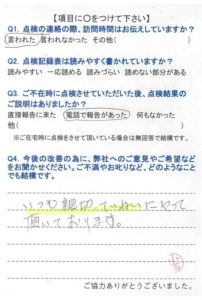 【項目に〇をつけて下さい】
Q1. 点検の連絡の際、訪問時間はお伝えしていますか?
言われた 言われなかった その他( )
Q2. 点検記録表は読みやすく書かれていますか?
読みやすい 一応読める 読みづらい 読めない部分がある
Q3. ご不在時に点検させていただいた後、点検結果の
ご説明はありましたか?
直接報告に来た 電話で報告があった 何もなかった
他( )
※ご在宅時に点検をさせて頂いている場合は無回答で結構です。
Q4. 今後の改善の為に、弊社へのご意見やご希望など
をお聞かせください。ご不満やお叱りなど、どのようなこと
でも結構です。
いつも親切、ていねいにやって
頂いております。
ご協力ありがとうございました。